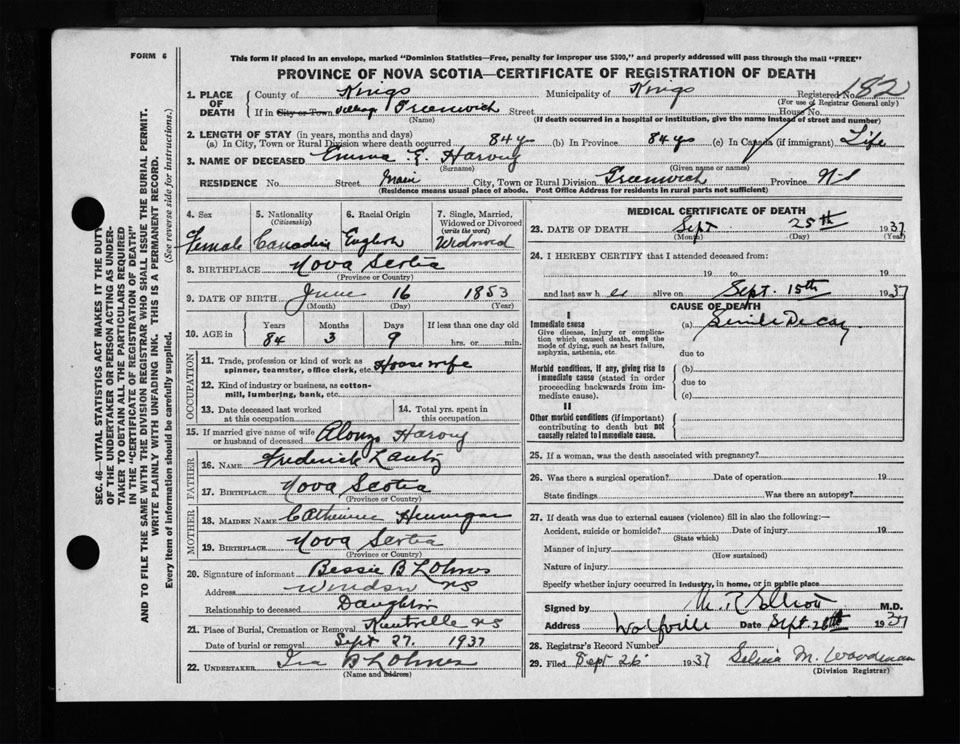 FORM 6
This form if placed in an envelope, marked "Dominion Statistics—Free, penalty for improper use $300," and properly addressed will pass through the mail "FREE"
PROVINCE OF NOVA SCOTIA—CERTIFICATE OF REGISTRATION OF DEATH
SEC. 46—VITAL STATISTICS ACT MAKES IT THE DUTY
OF THE UNDERTAKER OR PERSON ACTING AS UNDER-
TAKER TO OBTAIN ALL THE PARTICULARS REQUIRED
IN THE "CERTIFICATE OF REGISTRATION OF DEATH"
AND TO FILE THE SAME WITH THE DIVISION REGISTRAR WHO SHALL ISSUE THE BURIAL PERMIT.
WRITE PLAINLY WITH UNFADING INK. THIS IS A PERMANENT RECORD.
Every item of information should be carefully supplied. (See reverse side for instructions.)
1. PLACE OF DEATH County of Kings Municipality of Kings Registered No. 182
(For use of Registrar General only)
If in City or Town Village Greenwich Street House No.
(Name) (If death occurred in a hospital or institution, give the name instead of street and number)
2. LENGTH OF STAY (in years, months and days)
(a) In City, Town or Rural Division where death occurred 84 ys (b) In Province 84 ys (c) In Canada (if immigrant) Life
3. NAME OF DECEASED Emma E. Harvey
(Surname) (Given name or names)
RESIDENCE No. Street Main City, Town or Rural Division Greenwich Province N.S
(Residence means usual place of abode. Post Office Address for residents in rural parts not sufficient)
4. Sex Female
5. Nationality (Citizenship) Canadian
6. Racial Origin English
7. Single, Married, Widowed or Divorced (write the word) Widowed
8. BIRTHPLACE Nova Scotia
(Province or Country)
9. DATE OF BIRTH June 16 1853
(Month) (Day) (Year)
10. AGE in Years 84 Months 3 Days 9 If less than one day old hrs. or min.
OCCUPATION
11. Trade, profession or kind of work as spinner, teamster, office clerk, etc. Housewife
12. Kind of industry or business, as cotton-mill, lumbering, bank, etc.
13. Date deceased last worked at this occupation
14. Total yrs. spent in this occupation
15. If married give name of wife or husband of deceased Alonzo Harvey
FATHER
16. NAME Frederick Lantz
17. BIRTHPLACE Nova Scotia
(Province or Country)
MOTHER
18. MAIDEN NAME Catherine Hennigar
19. BIRTHPLACE Nova Scotia
(Province or Country)
20. Signature of informant Bessie B Lohnes
Address Windsor NS
Relationship to deceased Daughter
21. Place of Burial, Cremation or Removal Kentville NS
Date of burial or removal Sept 27. 1937
22. UNDERTAKER Ira B Lohnes
(Name and address)
MEDICAL CERTIFICATE OF DEATH
23. DATE OF DEATH Sept 25th 1937
(Month) (Day) (Year)
24. I HEREBY CERTIFY that I attended deceased from:
19 to 19
and last saw h er alive on Sept. 15th 1937
CAUSE OF DEATH
I
Immediate cause
Give disease, injury or complication which caused death, not the mode of dying, such as heart failure, asphyxia, asthenia, etc.
(a) Senile Decay
due to
Morbid conditions, if any, giving rise to immediate cause (stated in order proceeding backwards from immediate cause).
(b)
due to
(c)
II
Other morbid conditions (if important) contributing to death but not causally related to immediate cause.
25. If a woman, was the death associated with pregnancy?
26. Was there a surgical operation? Date of operation 19
State findings Was there an autopsy?
27. If death was due to external causes (violence) fill in also the following:—
Accident, suicide or homicide? Date of injury 19
(State which)
Manner of injury
(How sustained)
Nature of injury
Specify whether injury occurred in industry, in home, or in public place
Signed by M R Elliott M.D.
Address Wolfville Date Sept. 28th 1937
28. Registrar's Record Number
29. Filed Sept 26 1937 Selina M. Woodman
(Division Registrar)